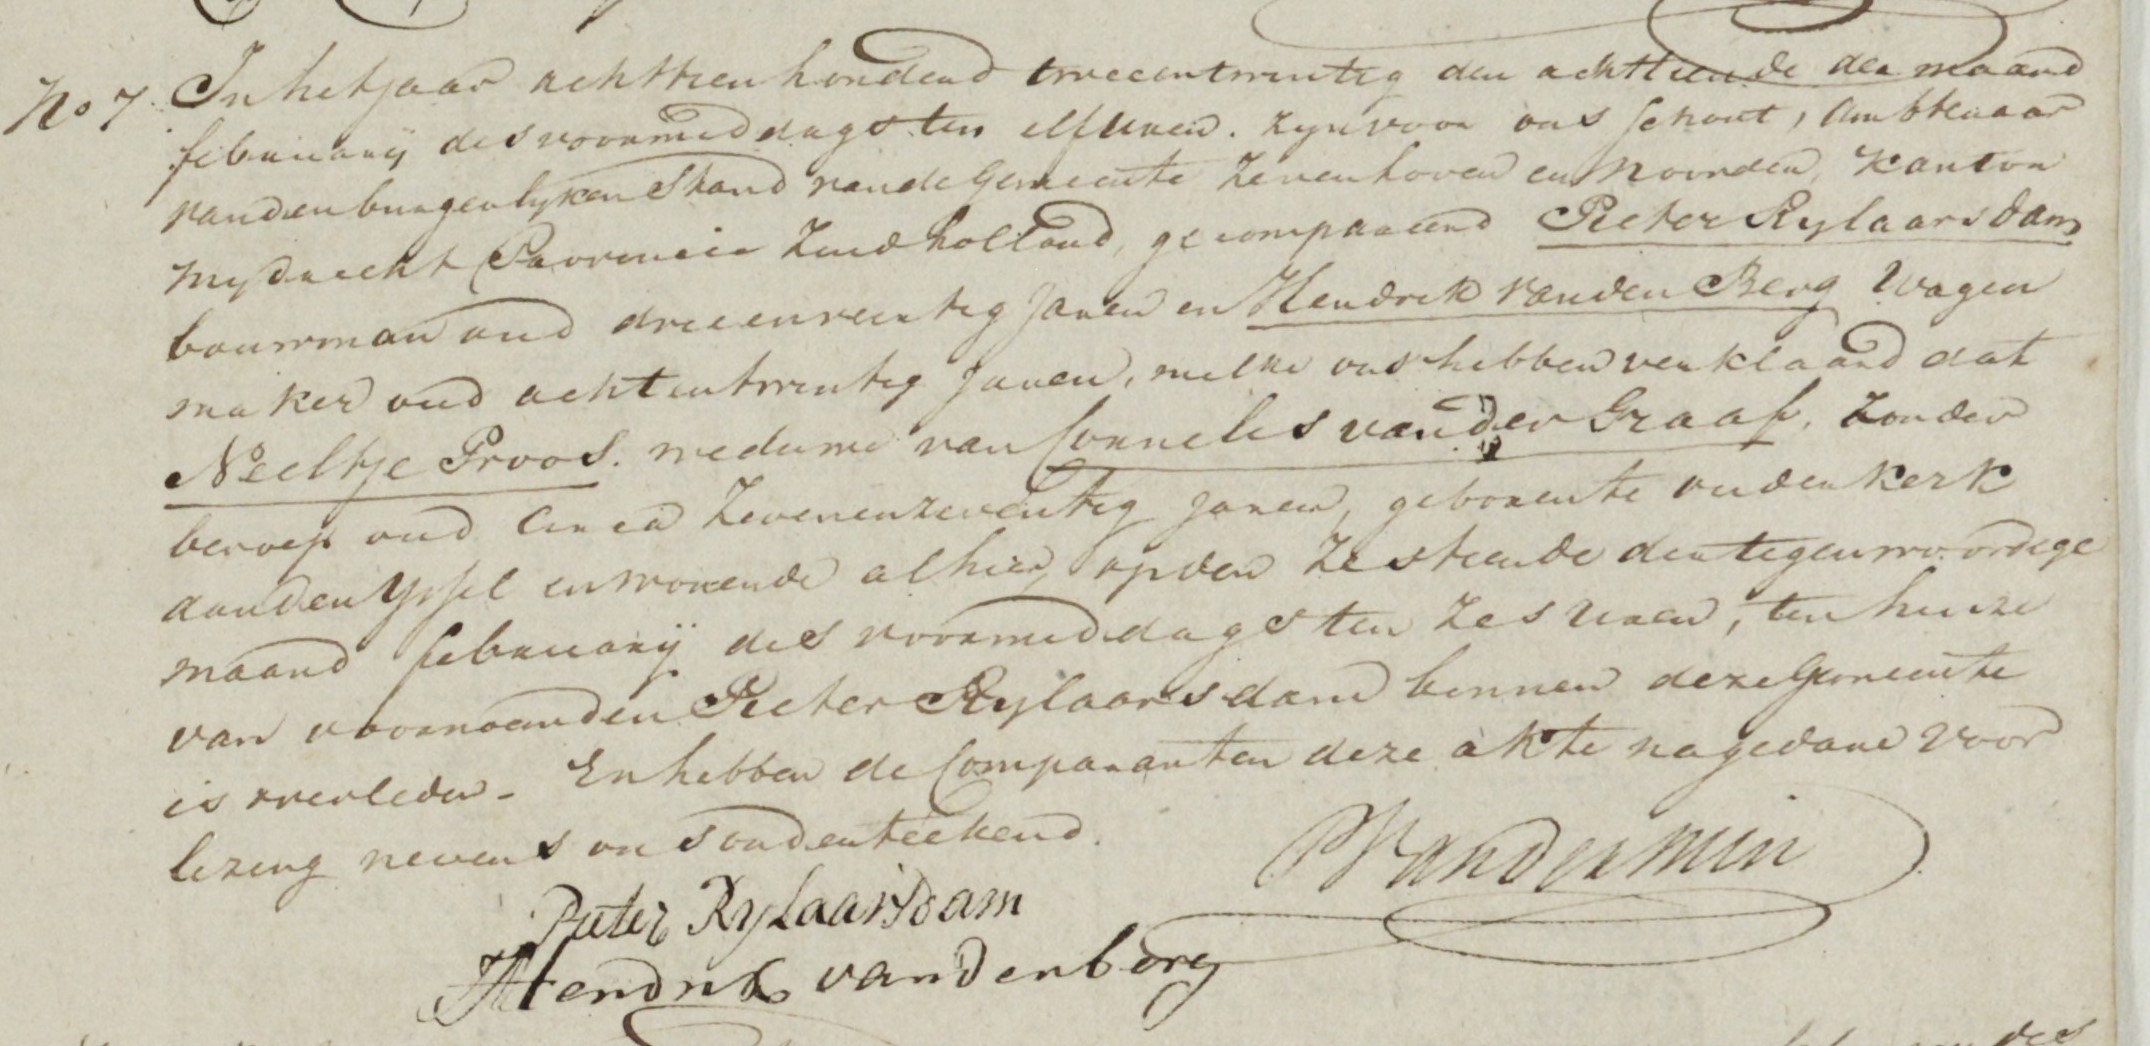 No 7. In het jaar achttien honderd tweeentwintig den achttiende der maand
february des voormiddags ten elf uren. zyn voor ons Schout, Ambtenaar
van den burgerlyken Stand van de Gemeente Zevenhoven en Noorden, Kanton
Mydrecht Provincie Zuid holland, gecompareerd Pieter Rylaarsdam
bouwman oud drieenveertig Jaren en Hendrik van den Berg Wagen
maker oud achtentwintig Jaren, welke ons hebben verklaard dat
Neeltje Proos. weduwe van Cornelis van der Graaf, Zonder
beroep oud Circa Zevenenzeventig Jaren, geboren te ouderkerk
aan den Yssel en wonende alhier, op den Zestiende der tegenwoordige
maand february des voormiddags ten Zes uren, ten huize
van voornoemden Pieter Rylaarsdam binnen deze Gemeente
is overleden - En hebben de Comparanten deze akte na gedane voor
lezing nevens ons onderteekend.
Vandermin
Pieter Rylaarsdam
Hendrik van den berg